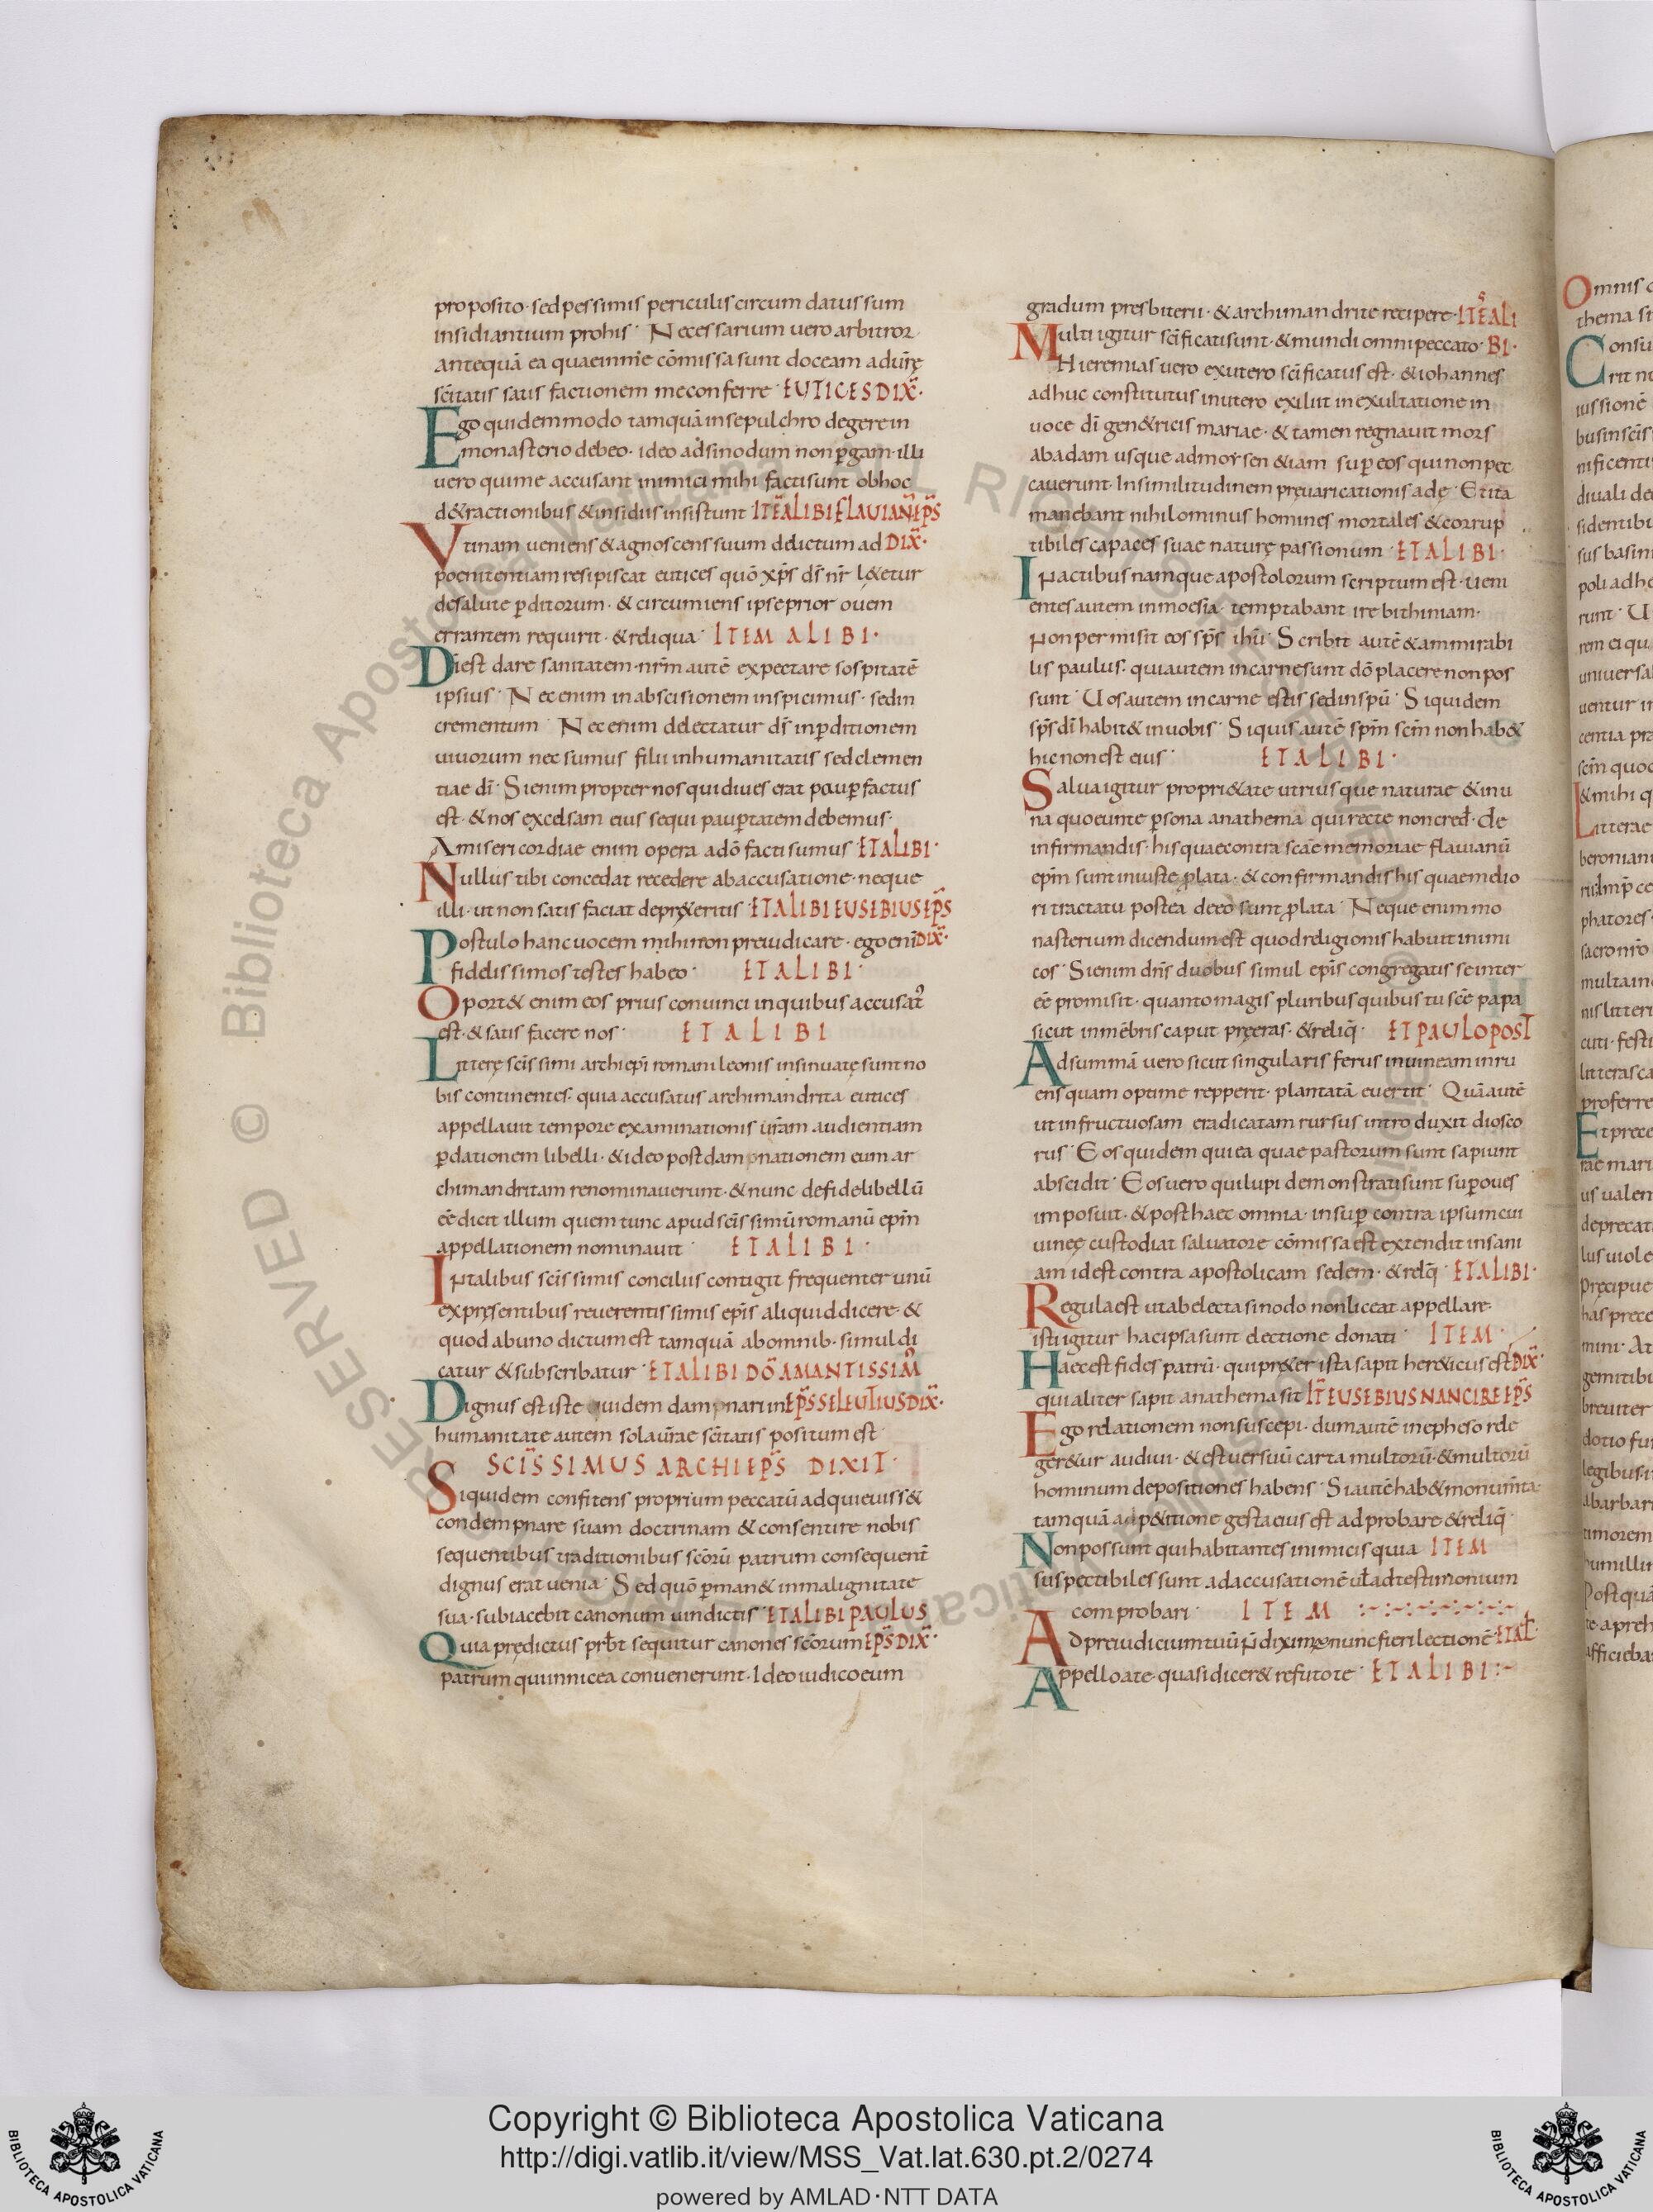 proposito· sedpessimis periculis circum datus sum
insidiantium prohis· Necessarium uero arbitror
antequā ea quaeinme cōmissa sunt doceam adur̄ę
sc̄itatis satis factionem meconferre· EUTICES DIX̄·
Ego quidemmodo tamquā insepulchro degerein
monasterio debeo· ideo adsinodum nonꝑgam· illi
uero quime accusant inimici mihi factisunt obhoc
d&ractionibus &insidiis insistunt· ITĒ ALIBI FLAUIAN̄ EP̄S
Vtinam ueniens &agnoscens suum delictum ad DIX̄·
poenitentiam resipiscat eutices quō xp̄s d̄s nr̄ l&etur
desalute ꝑditorum· & circumiens ipseprior ouem
errantem requirit· &reliqua· ITEM ALIBI·
Diest dare sanitatem· nr̄m autē expectare sospitatē
ipsius· Nec enim inabscisionem inspicimus· sedin
crementum· Nec enim delectatur d̄s inꝑditionem
uiuorum nec sumus filii inhumanitatis sedclemen
tiae dī· Sienim propter nos quidiues erat pauꝑ factus
est· &nos excelsam eius sequi pauꝑtatem debemus·
Amisericordiae enim opera adō facti sumus· ET ALIBI·
Nullus tibi concedat recedere abaccusatione· neque
illi· ut non satis faciat depr&eritis· ET ALIBI EUSEBIUS EP̄S
Postulo hanc uocem mihi non preiudicare· ego enī DIX̄·
fidelissimos testes habeo· ET ALIBI·
Oport& enim eos prius conuinci inquibus accusat᷒
est· & satis facere nos· ET ALIBI
Litterę sc̄issimi archiep̄i romani leonis insinuatę sunt no
bis continentes· quia accusatus archimandrita eutices
appellauit tempore examinationis ur̄am audientiam
ꝑdationem libelli· &ideo post dampnationem eum ar
chimandritam renominauerunt· & nunc defidelibellū
eē dicit illum quem tunc apud sc̄issimū romanū ep̄m
appellationem nominauit· ET ALIBI·
INtalibus sc̄issimis conciliis contigit frequenter unū
expręsentibus reuerentissimis ep̄is aliquid dicere· &
quod abuno dictum est tamquā abomnib· simul di
catur &subscribatur· ET ALIBI DŌ AMANTISSIM᷒
Dignus est iste quidem dampnari in EP̄S SELEUTIUS DIX̄·
humanitate autem sola ur̄ae sc̄itatis positum est·
SCĪSSIMUS ARCHIEP̄S DIXIT·
Siquidem confitens proprium peccatū adquieuiss&
condempnare suam doctrinam & consentire nobis
sequentibus traditionibus sc̄orū patrum consequent̄
dignus erat uenia· Sed quō ꝑman& inmalignitate
sua· subiacebit canonum uindictis· ET ALIBI PAULUS
Quia prędictus prb̄t sequitur canones sc̄orum EP̄S DIX̄·
patrum quiinnicea conuenerunt· Ideo iudico eum
gradum presbiterii· & archimandrite recipere· ITĒ ALI
Multi igitur sc̄ificati sunt· & mundi omni peccato· BI·
Hieremias uero exutero sc̄ificatus est· & iohannes
adhuc constitutus inutero exiluit inexultatione in
uoce dī gen&ricis mariae· & tamen regnauit mors
abadam usque admoysen &iam suꝑ eos quinonpec
cauerunt· Insimilitudinem pręuaricationis adę· Et ita
manebant nihilominus homines mortales &corrup
tibiles capaces suae naturę passionum· ET ALIBI·
INactibus namque apostolorum scriptum est· ueni
entes autem inmoesia· temptabant ire bithiniam·
Non permisit eos sp̄s ih̄u· Scribit autē &ammirabi
lis paulus· quiautem incarnesunt dō placere nonpos
sunt· Uos autem incarne estis sedinsp̄u· Siquidem
sp̄s dī habit& inuobis· Siquis autē sp̄m sc̄m non hab&
hic non est eius· ET ALIBI·
Salua igitur propri&ate utriusque naturae &inu
na quoeunte ꝑsona anathema qui recte non cred̄· de
infirmandis· his quaecontra sc̄ae memoriae flauianū
ep̄m sunt iniuste ꝓlata· & confirmandis his quaemelio
ri tractatu postea de eo sunt ꝓlata· Neque enim mo
nasterium dicendum est quod religionis habuit inimi
cos· Sienim dn̄s duobus simul ep̄is congregatis se inter
eē promisit· quanto magis pluribus quibus tu sc̄e papa
sicut inmēbris caput pręeras· &reliq̄· ET PAULO POST
Adsummā uero sicut singularis ferus inuineam inru
ens quam optime repperit· plantatā euertit· Quā autē
ut infructuosam eradicatam rursus introduxit diosco
rus· Eos quidem qui ea quae pastorum sunt sapiunt
abscidit· Eos uero qui lupi demonstrati sunt suꝑ oues
imposuit· & post haec omnia· insuꝑ contra ipsum cui
uineę custodia a salvatore cōmissa est extendit insani
am id est contra apostolicam sedem· & reliq̄· ET ALIBI·
Regula est ut ab electa sinodo non liceat appellare·
isti igitur hac ipsa sunt electione donati· ITEM·
Haec est fides patrū· qui pr&er ista sapit her&icus est DIX̄·
qui aliter sapit anathema sit· IT̄ EUSEBIUS NANCIRE EP̄S
Ego relationem non suscepi· dum autē inepheso rele
ger&ur audiui· & est uersuū carta multorū· &multorū
hominum depositiones habens· Si autē hab& monum̄ta·
tamquā adp&itione gesta eius est adprobare &reliq̄·
Non possunt qui habitantes inimicis quia ITEM
suspectibiles sunt adaccusationē uł ad testimonium
comprobari· ITEM
Ad preiudicium tuū diximus nunc fieri lectionē· ET AL̄·
Appello a te· quasi dicer& refuto te· ET ALIBI:~
Copyright © Biblioteca Apostolica Vaticana
http://digi.vatlib.it/view/MSS_Vat.lat.630.pt.2/0274
powered by AMLAD·NTT DATA
BIBLIOTECA APOSTOLICA VATICANA
BIBLIOTECA APOSTOLICA VATICANA